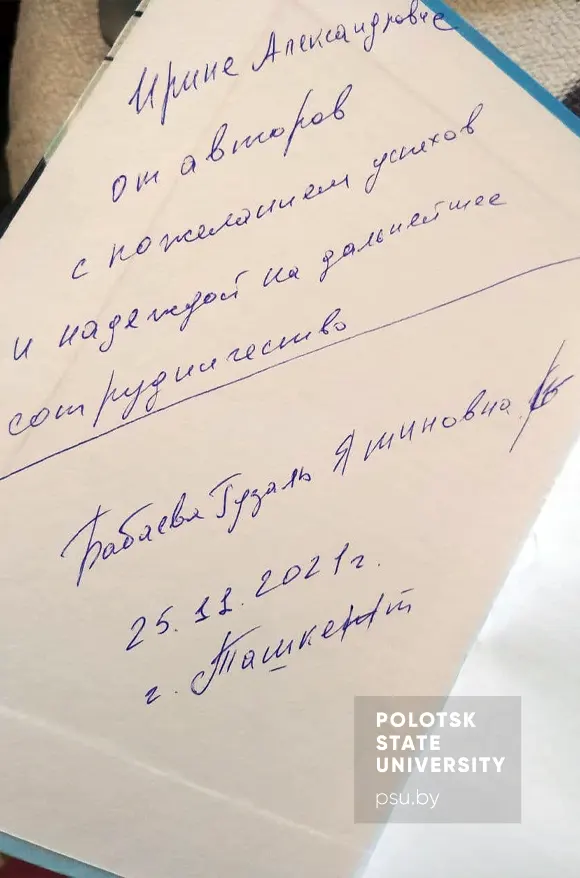 Ирине Александровне
от авторов
с пожеланием успехов
и надеждой на дальнейшее
сотрудничество
Бабаева Гузаль Яминовна
25.11.2021г.
г. Ташкент
POLOTSK
STATE
UNIVERSITY
psu.by